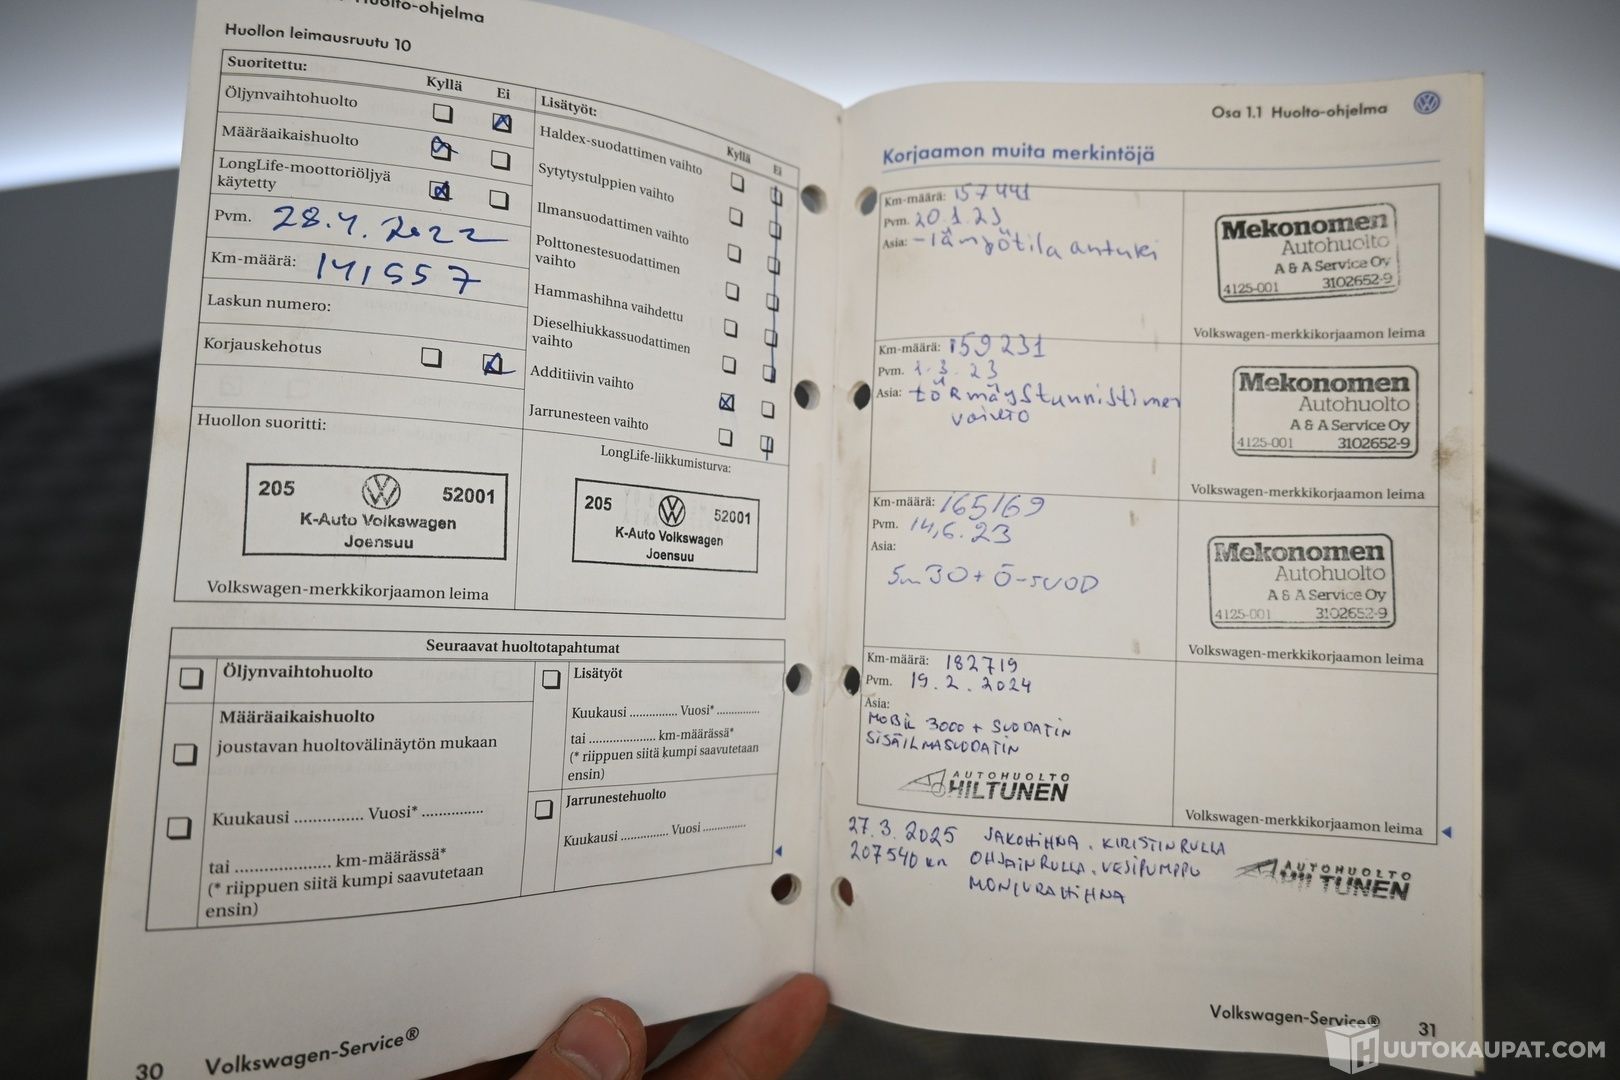 Huolto-ohjelma
Huollon leimausruutu 10
Suoritettu:
Kyllä
Ei
Öljynvaihtohuolto
Määräaikaishuolto
LongLife-moottoriöljyä
käytetty
Pvm. 28.4.2022
Km-määrä: 141557
Laskun numero:
Korjauskehotus
Lisätyöt:
Kyllä
Ei
Haldex-suodattimen vaihto
Sytytystulppien vaihto
Ilmansuodattimen vaihto
Polttonestesuodattimen
vaihto
Hammashihna vaihdettu
Dieselhiukkassuodattimen
vaihto
Additiivin vaihto
Jarrunesteen vaihto
Huollon suoritti:
205 52001
K-Auto Volkswagen
Joensuu
Volkswagen-merkkikorjaamon leima
LongLife-liikkumisturva:
205 52001
K-Auto Volkswagen
Joensuu
Seuraavat huoltotapahtumat
Öljynvaihtohuolto
Määräaikaishuolto
joustavan huoltovälinäytön mukaan
Kuukausi ............... Vuosi* ..............
tai ..................... km-määrässä*
(* riippuen siitä kumpi saavutetaan
ensin)
Lisätyöt
Kuukausi .............. Vuosi* .............
tai .................... km-määrässä*
(* riippuen siitä kumpi saavutetaan
ensin)
Jarrunestehuolto
Kuukausi .............. Vuosi .............
30 Volkswagen-Service®
Osa 1.1 Huolto-ohjelma
Korjaamon muita merkintöjä
Km-määrä: 157441
Pvm. 20.1.23
Asia: - lämpötila anturi
Mekonomen
Autohuolto
A & A Service Oy
4125-001 3102652-9
Volkswagen-merkkikorjaamon leima
Km-määrä: 159231
Pvm. 1.3.23
Asia: törmäystunnistimen
vaihto
Mekonomen
Autohuolto
A & A Service Oy
4125-001 3102652-9
Volkswagen-merkkikorjaamon leima
Km-määrä: 165169
Pvm. 14,6.23
Asia:
5w30 + Ö-SUOD
Mekonomen
Autohuolto
A & A Service Oy
4125-001 3102652-9
Volkswagen-merkkikorjaamon leima
Km-määrä: 182719
Pvm. 19.2.2024
Asia:
MOBIL 3000 + SUODATIN
SISÄILMASUODATIN
AUTOHUOLTO
HILTUNEN
Volkswagen-merkkikorjaamon leima
27.3.2025 JAKOHIHNA. KIRISTINRULLA
207540 km OHJAINRULLA. VESIPUMPPU
MONIURAHIHNA
AUTOHUOLTO
HILTUNEN
Volkswagen-Service® 31
HUUTOKAUPAT.COM